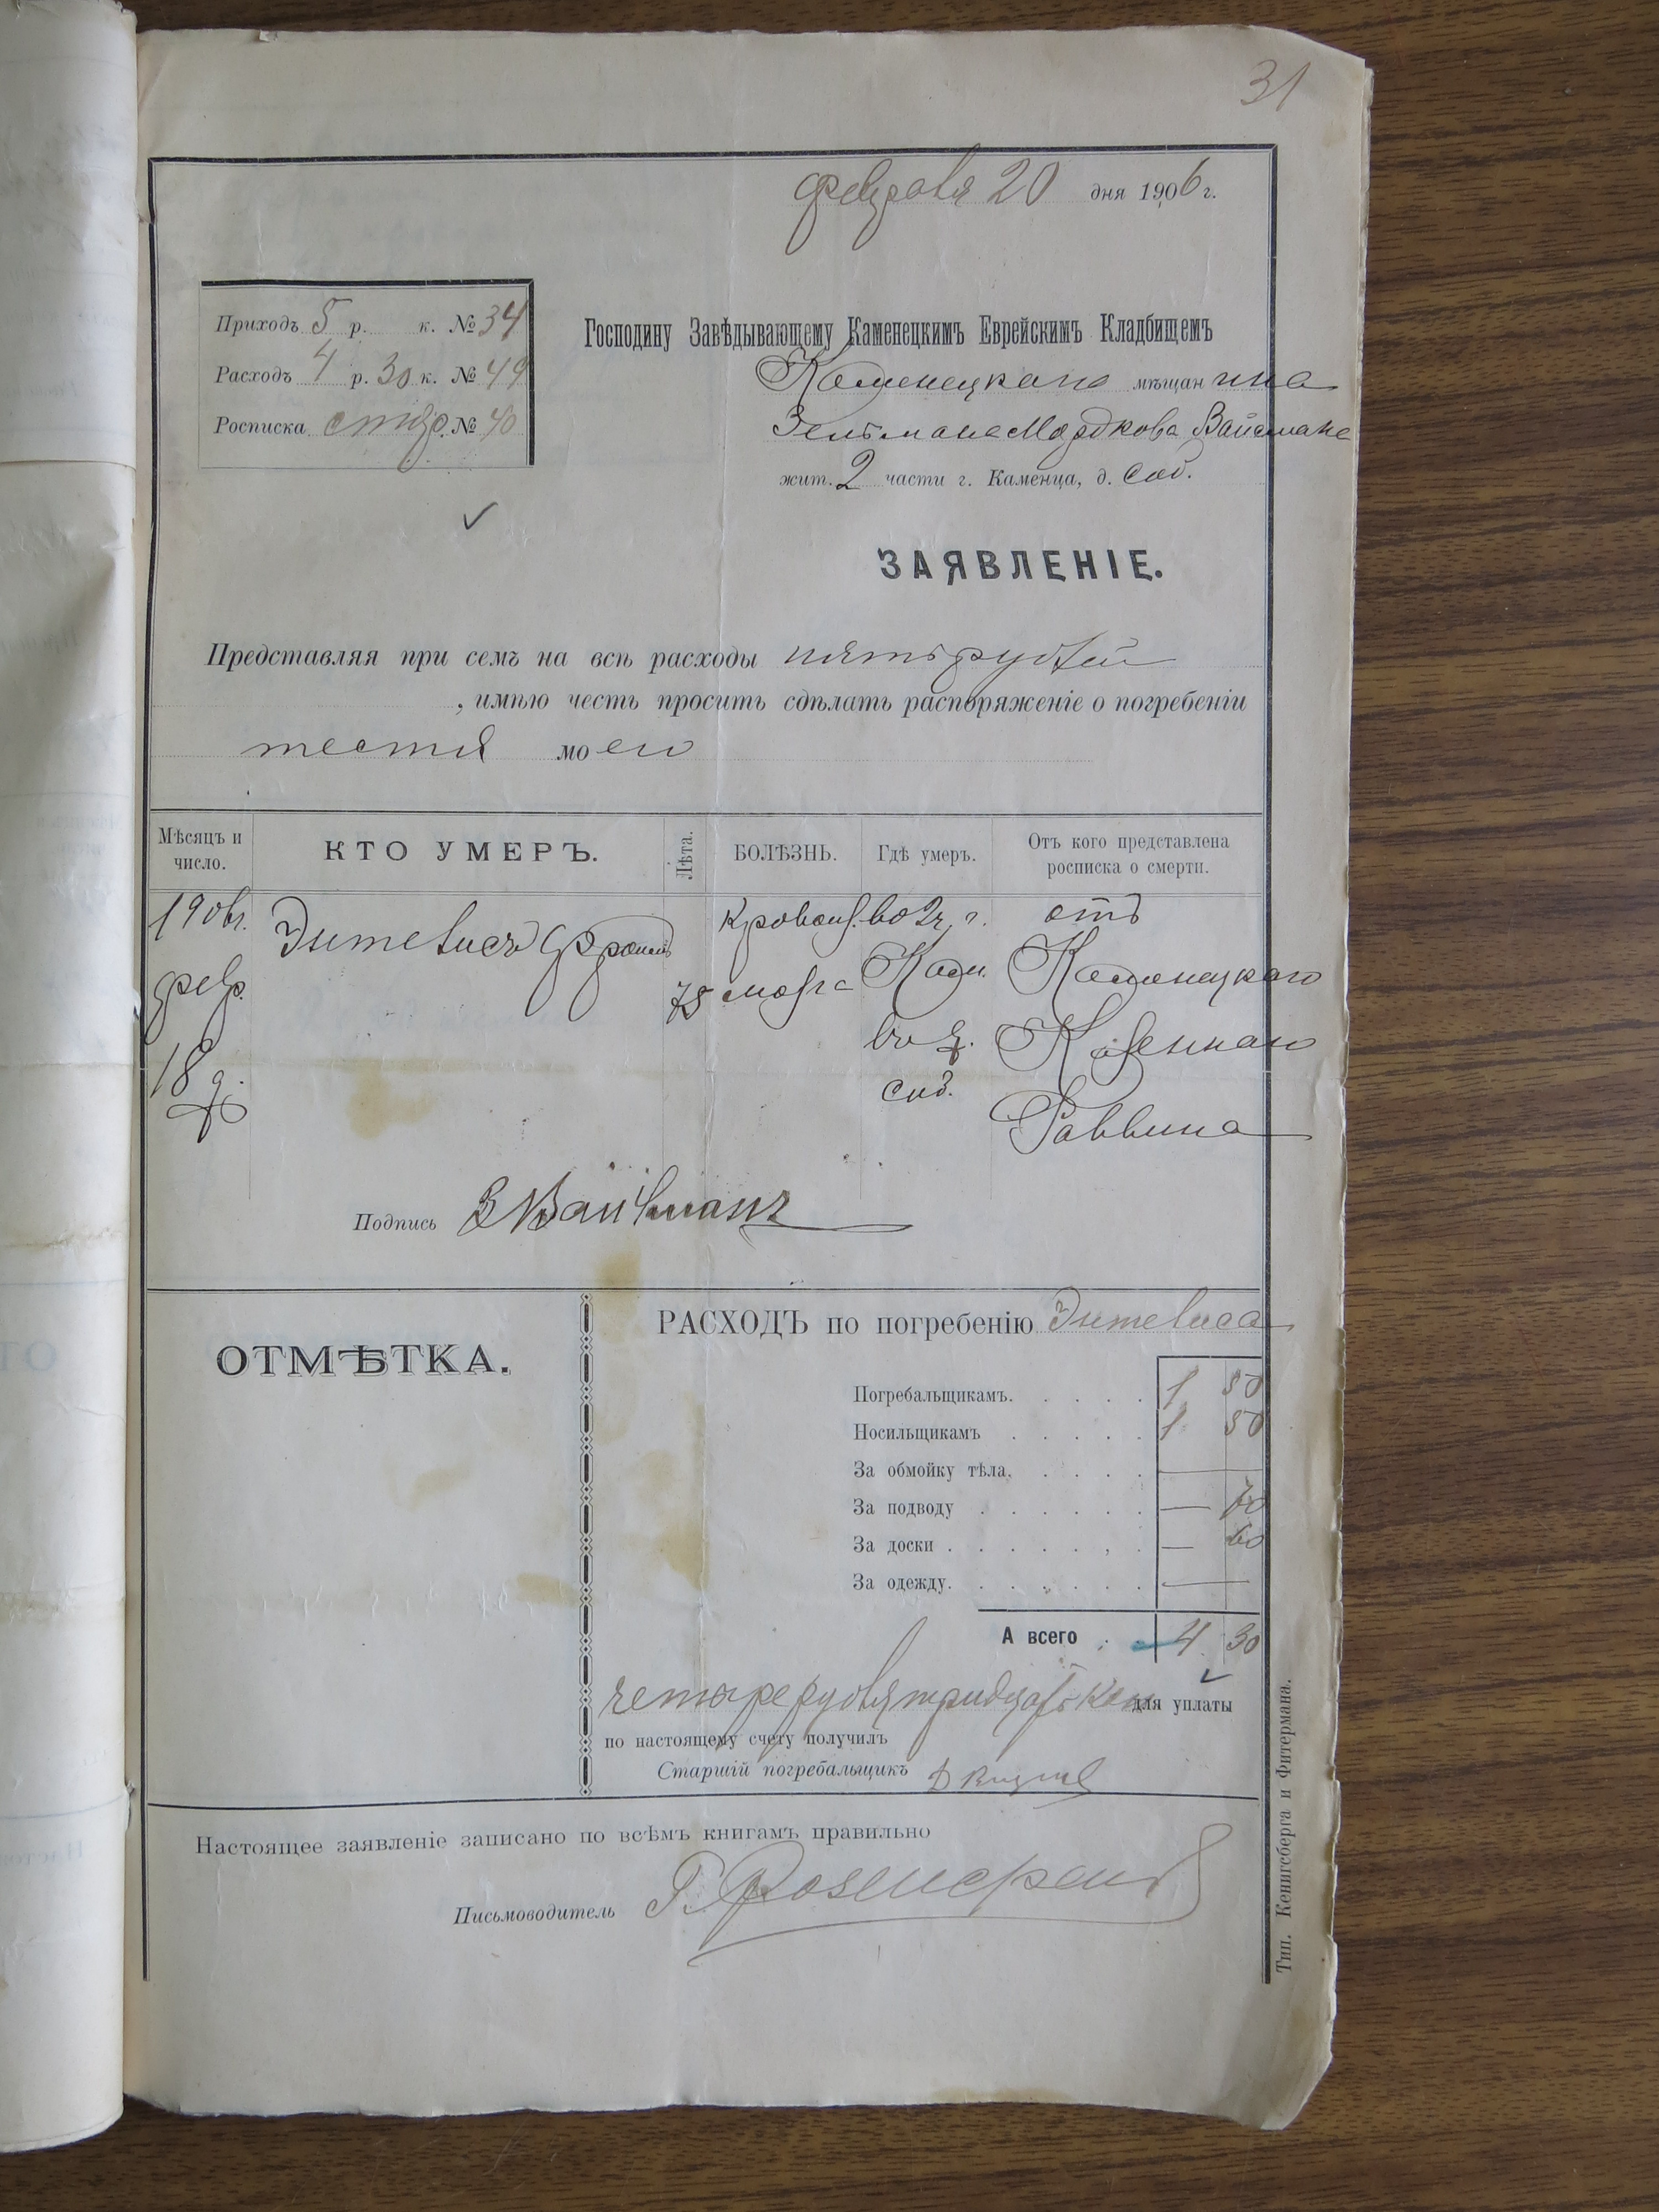 31
февраля 20 дня 1906 г.
Приходъ 5 р. к. № 34
Расходъ 4 р. 30 к. № 49
Росписка № 40
Господину Завѣдывающему Каменецкимъ Еврейскимъ Кладбищемъ
Каменецкаго мѣщанина
Зельмана Мордкова Вайсмана
жит. 2 части г. Каменца, д. соб.
ЗАЯВЛЕНІЕ.
Представляя при семъ на всѣ расходы пять рублей
, имѣю честь просить сдѣлать распоряженіе о погребеніи
тестя моего
Мѣсяцъ и число.
КТО УМЕРЪ.
Лѣта.
БОЛѢЗНЬ.
Гдѣ умеръ.
Отъ кого представлена росписка о смерти.
1906г.
февр.
18 д.
75
мозга
во 2 ч. г.
Кам.
въ д.
соб.
отъ
Каменецкаго
Казеннаго
Раввина
Подпись З Вайсманъ
ОТМѢТКА.
РАСХОДЪ по погребенію
Погребальщикамъ. . . . . 1 50
Носильщикамъ . . . . . 1 50
За обмойку тѣла. . . . . —
За подводу . . . . . . — 70
За доски . . . . . . . — 60
За одежду. . . . . . . —
А всего . 4 30
четыре рубля тридцать коп для уплаты
по настоящему счету получилъ
Старшій погребальщикъ
Настоящее заявленіе записано по всѣмъ книгамъ правильно
Письмоводитель
Тип. Кенигсберга и Фитермана.